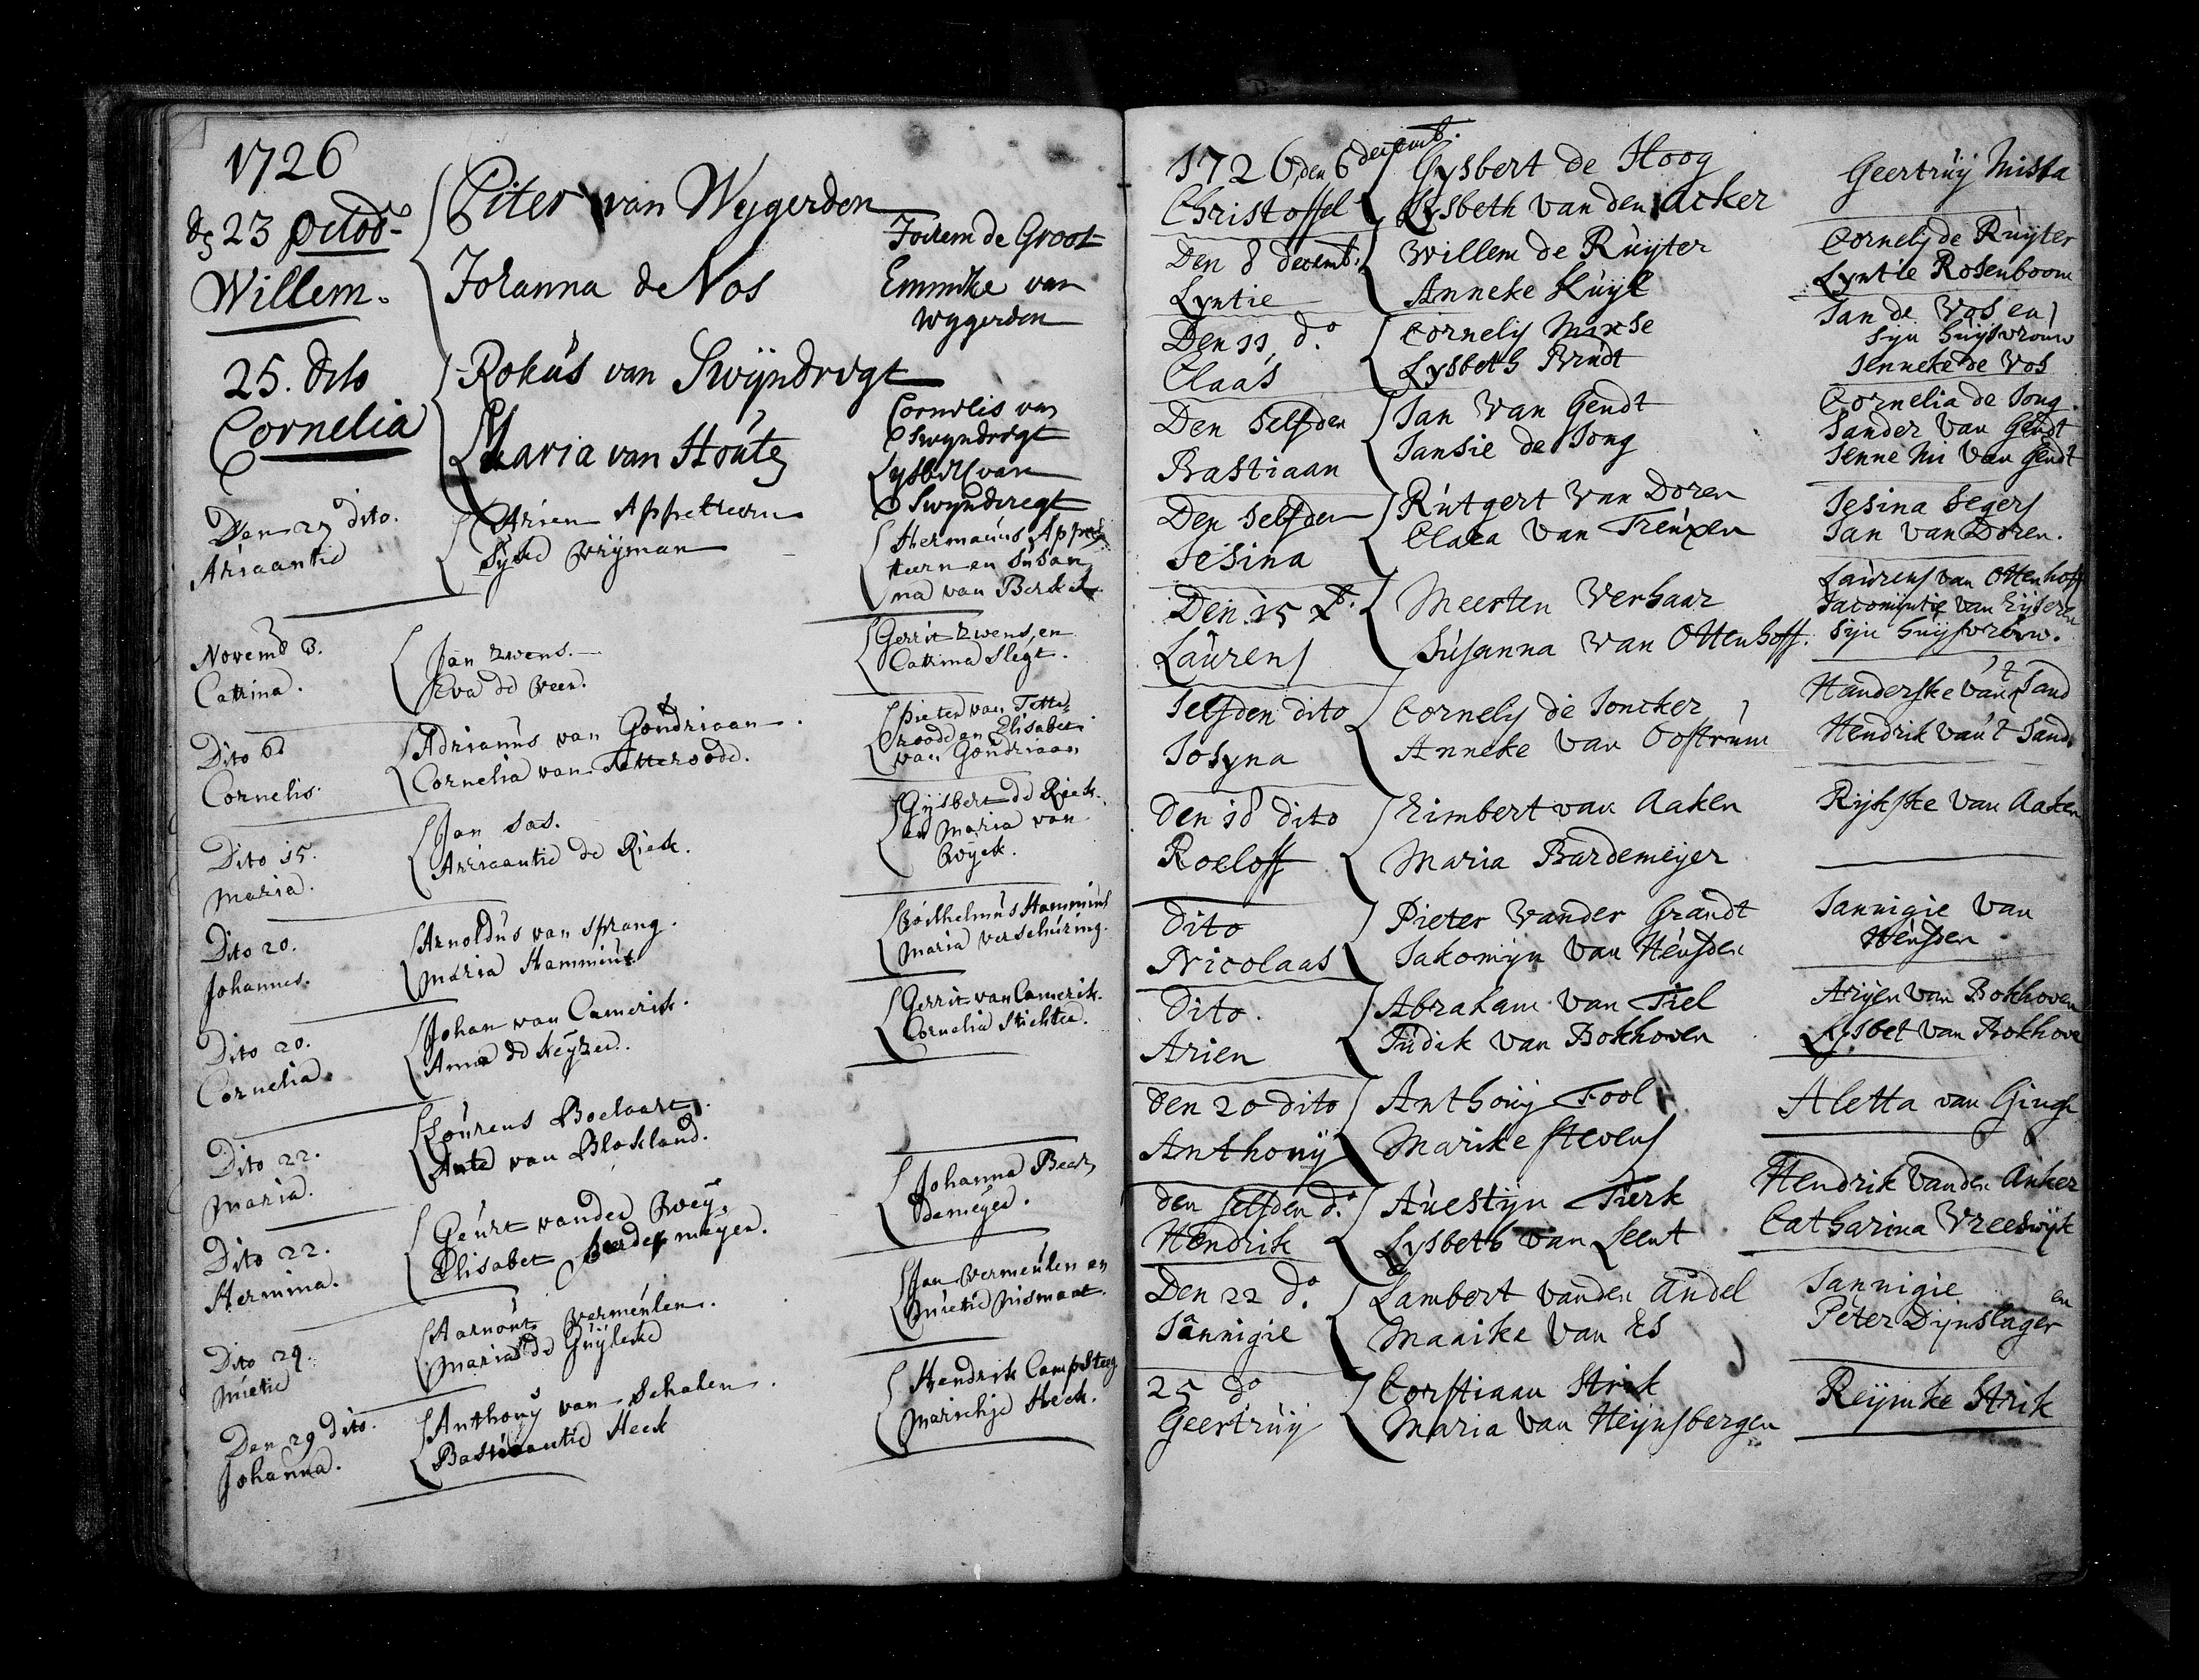 1726
dē 23 octob
Willem.
Piter van Wygerden
Johanna de Vos
Jochem de Groot
Emmike van
Wygerden
25. dito
Cornelia
Rokus van Swyndrogt
Maria van Houte
Cornelis van
Swyndrogt
Lysbet van
Swyndregt
Den 27 dito.
Ariaantie
Arien Appelteern
Sytie Weyman
Hermanus Appel
teern en Susan
na van Berckel
Novemb 3.
Catrina.
Jan Zwens.
Eva de Veer.
Gerrit Zwens, en
Catrina Slegt.
Dito 6d
Cornelis.
Adrianus van Goudriaan.
Cornelia van Tetterode.
Pieter van Tette-
roode en Elisabet
van Goudriaan
Dito 15.
Maria.
Jan Sas.
Ariaantie de Riek.
Gysbert de Riek.
en Maria van
Wyck.
Dito 20.
Johannes.
Arnoldus van Sprang.
Maria Hammius.
Wilhelmus Hammius
Maria Verschuring.
Dito 20.
Cornelia.
Johan van Camerik.
Anna de Keyzer.
Gerrit van Camerik.
Cornelia Stichter.
Dito 22.
Maria.
Lourens Boelaart.
Ante van Blokland.
Dito 22.
Hermina.
Geurt vander Wey,
Elisabet Berdemeyer.
Johanna Bear,
demeyer.
Dito 29.
Mietie
Aarnout Vermeulen.
Maria de Guylicke
Jan Vermeulen en
Mietie Mismaat.
Den 29 dito.
Johanna.
Anthony van Schalen.
Bastiaantie Heck
Hendrik Campsteeg
Marichje Heck.
1726, den 6 decemb.
Christoffel
Gysbert de Hoog
Lysbeth van den Acker
Geertruy Mista
Den 8 decemb.
Lyntie
Willem de Ruyter
Anneke Kuyk
Cornely de Ruyter
Lyntie Rosenboom
Den 11 do.
Claas
Cornelis Maxse
Lysbeth Brudt
Jan de Vos en
syn huysvrouw
Jenneke de Vos
Den Selfden
Bastiaan
Jan van Gendt
Jansie de Jong
Cornelia de Jong.
Sander van Gendt
Jenne Mi van Gendt
Den Selfden
Jesina
Rutgert van Doren
Clara van Treuxen
Jesina Segers
Jan van Doren.
Den 15 xb.
Laurens
Meerten Verhaar
Susanna van Ottenhoff.
Laurens van Ottenhoff
Jacomyntie van Eyseren
syn huysvrouw.
Selfden dito
Josyna
Cornelis de Joncker
Anneke van Oostrum
Handerske van 't Sand
Hendrik van 't Sand.
Den 18 dito
Roeloff
Eimbert van Aaken
Maria Bardemeyer
Rykske van Aaken
Dito
Nicolaas
Pieter vander Grandt
Jakomyn van Heusden
Jannigie van
Heusden
Dito.
Arien
Abraham van Tiel
Judik van Bokhoven
Aryen van Bokhoven
Lysbet van Bokhove
Den 20 dito
Anthony
Anthony Fool
Marike Stevens
Aletta van Ginge
den selfden do.
Hendrik
Auestyn Turk
Lysbeth van Leent
Hendrik vanden Anker
Catharina Vreeswyk
Den 22 do.
Jannigie
Lambert vanden Andel
Maaike van Es
Jannigie en
Peter Dynslager
25 do
Geertruy
Corstiaan Strik
Maria van Heynsbergen
Reymke Strik